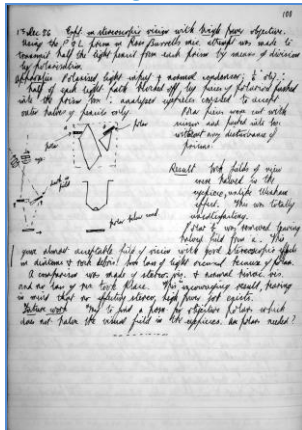 108
Dec 56 Expt. in stereoscopic vision with high power objective.
Using the P.O.L. prism in Ross Burrells mic. attempt was made to
transmit half the light pencil from each prism by means of divisions
by polarisation
Apparatus Polarised light input & normal condenser; & obj:-
half of each light path blocked off by pieces of polaroid pushed
into the prism box; analysers eyepieces to accept
outer halves of pencils only.
Polar pieces were cut with
and pushed into box
without any disturbance of
prisms.
polar
Result. Both fields of view
were halved in the
eyepieces, unlike
effect. This was totally
unsatisfactory.
Polar was removed leaving
halved field from a. This
polar piece used
gave almost acceptable field of vision with good stereoscopic effects
in diatoms & rock debris! but loss of light occurred because of polars.
A comparison was made of stereo. vis. & normal binoc. vis.
and no loss of res. took place. This, encouraging result, bearing
in mind that no effective stereo high power yet exists.
Future work Try to find a posn. by objective polars which
does not halve the visual field in the eyepieces. Are polars needed?